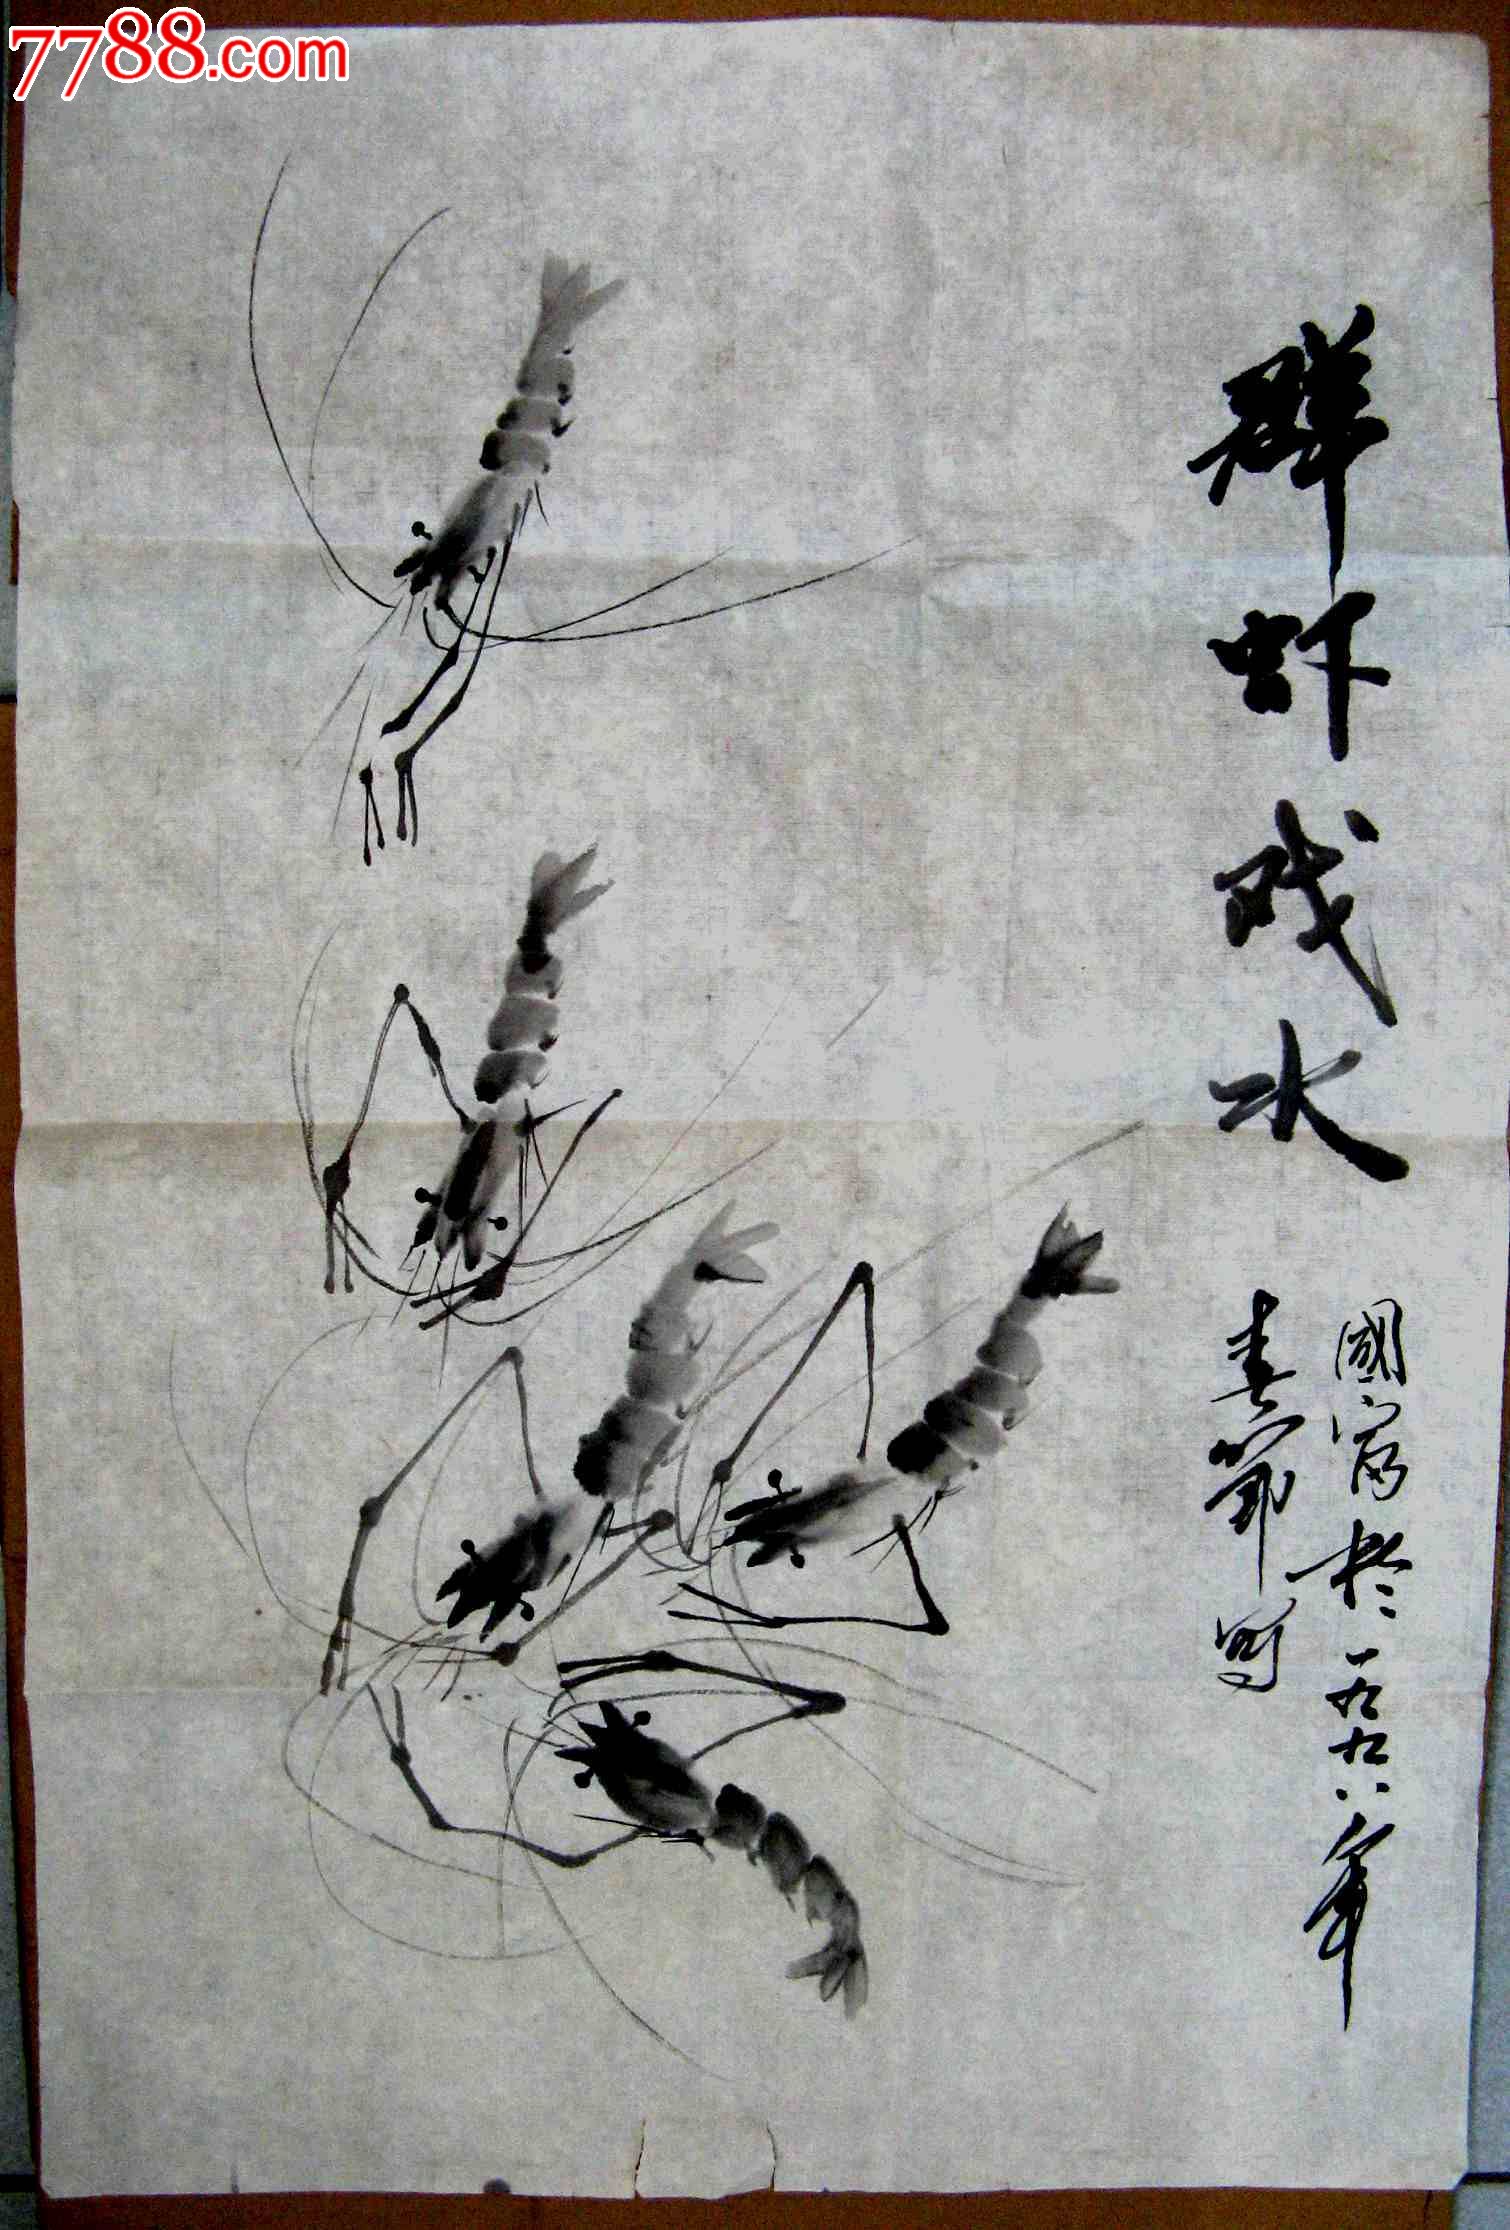 7788.com
群虾戏水
國富於一九九八年
春节写